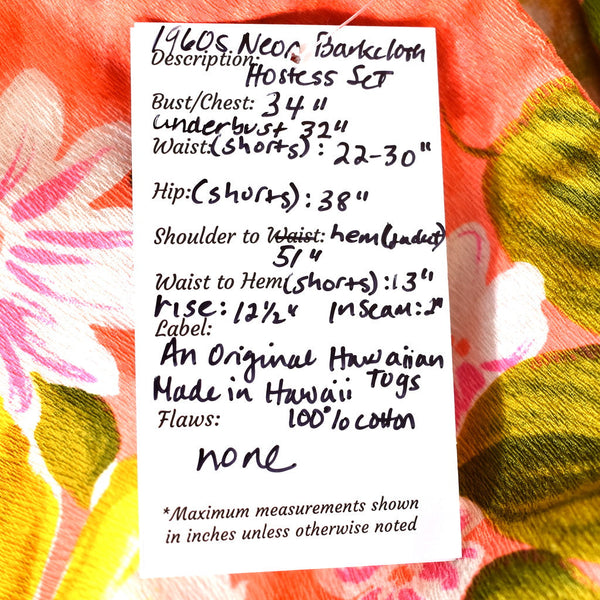 1960s Neon Barkcloth
Description:
Hostess Set
Bust/Chest: 34"
underbust 32"
Waist:(shorts): 22-30"
Hip:(shorts): 38"
Shoulder to Waist: hem
51"
Waist to Hem(shorts): 13"
rise: 12½" Inseam: 2"
Label:
An Original Hawaiian
Togs
Made in Hawaii
Flaws: 100% cotton
none
*Maximum measurements shown
in inches unless otherwise noted